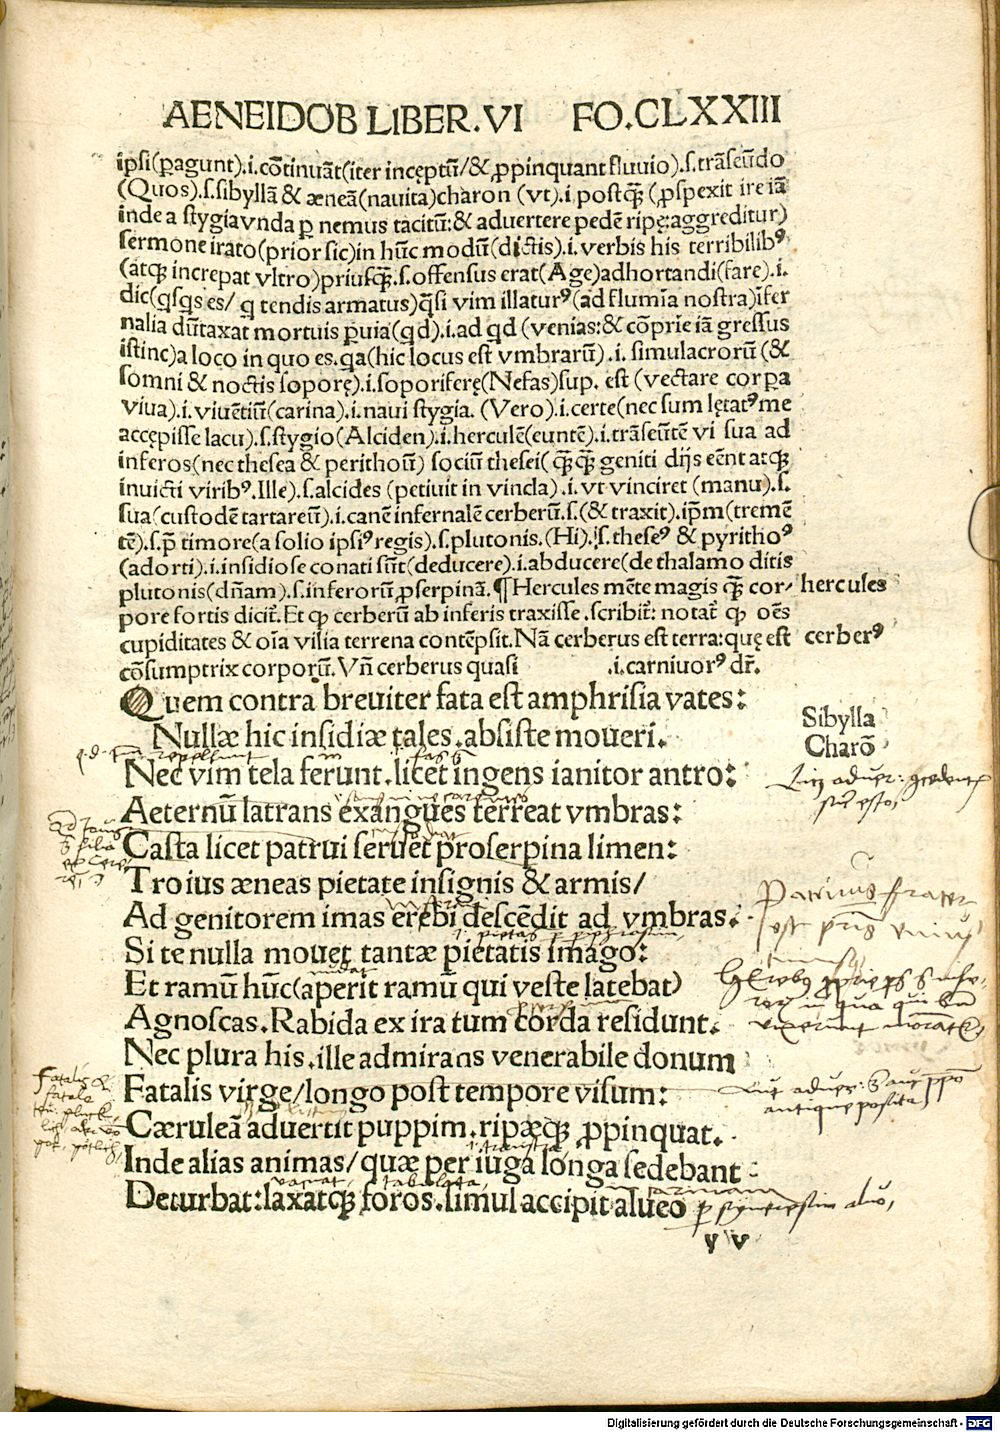 AENEIDOB LIBER.VI FO.CLXXIII
ipsi(ꝑagunt).i.cõtinuãt(iter incęptũ/& ꝓpinquant fluuio).s.trãseũdo
(Quos).s.sibyllã & æneã(nauita)charon (vt).i postq̃ (ꝓspexit ire iã
inde a stygia vnda ꝑ nemus tacitũ:& aduertere pedẽ ripę:aggreditur)
sermone irato(prior sic)in hũc modũ(dictis).i.verbis his terribilibꝰ
(atqꝫ increpat vltro)priusq̃.s.offensus erat(Age)adhortandi(fare).i.
dic(qsqs es/ q tendis armatus)q̃si vim illaturꝰ(ad flumĩa nostra)ĩfer
nalia dũtaxat mortuis ꝑuia(qd).i.ad qd (venias:& cõprie iã gressus
istinc)a loco in quo es.qa(hic locus est vmbrarũ).i. simulacrorũ (&
somni & noctis soporę).i.soporiferę(Nefas)sup. est (vectare corꝑa
viua).i.viuẽtiũ(carina).i.naui stygia. (Vero).i.certe(nec sum lętatꝰme
accępisse lacu).s.stygio(Alciden).i.herculẽ(euntẽ).i.trãseũtẽ vi sua ad
inferos(nec thesea & perithoũ) sociũ thesei( q̃q̃ geniti dijs eẽnt atqꝫ
inuicti viribꝰ.Ille).s.alcides (petiuit in vincla).i.vt vinciret (manu).s.
sua(custodẽ tartareũ).i.canẽ infernalẽ cerberũ.s.(& traxit).ip̃m(tremẽ
tẽ).s.p̃ timore(a solio ipsiꝰregis).s.plutonis.(Hi).s.theseꝰ & pyrithoꝰ
(adorti).i.insidiose conati sũt(deducere).i.abducere(de thalamo ditis
plutonis(dñam).s.inferorũ ꝓserpinã.¶Hercules mẽte magis q̃ cor- hercules
pore fortis dicit̃.Et ꝙ cerberũ ab inferis traxisse .scribit̃: notat̃ ꝙ oẽs
cupiditates & oĩa vilia terrena contẽpsit.Nã cerberus est terra:quę est cerberꝰ
cõsumptrix corporũ.Vñ cerberus quasi .i.carniuorꝰ dr̃.
Quem contra breuiter fata est amphrisia vates:
Sibylla
Nullæ hic insidiæ tales.absiste moueri.
Charõ
Nec vim tela ferunt.licet ingens ianitor antro:
Aeternũ latrans exangues terreat vmbras:
Casta licet patrui seruet proserpina limen:
Troius æneas pietate insignis & armis/
Ad genitorem imas erebi descẽdit ad vmbras.
Si te nulla mouet tantæ pietatis imago:
Et ramũ hũc(aperit ramũ qui veste latebat)
Agnoscas.Rabida ex ira tum corda residunt.
Nec plura his.ille admirans venerabile donum
Fatalis virge/longo post tempore visum:
Cæruleã aduertit puppim.ripæqꝫ ꝓpinquat.
Inde alias animas/quæ per iuga longa sedebant
Deturbat:laxatqꝫ foros.simul accipit alueo
y v
Digitalisierung gefördert durch die Deutsche Forschungsgemeinschaft - DFG